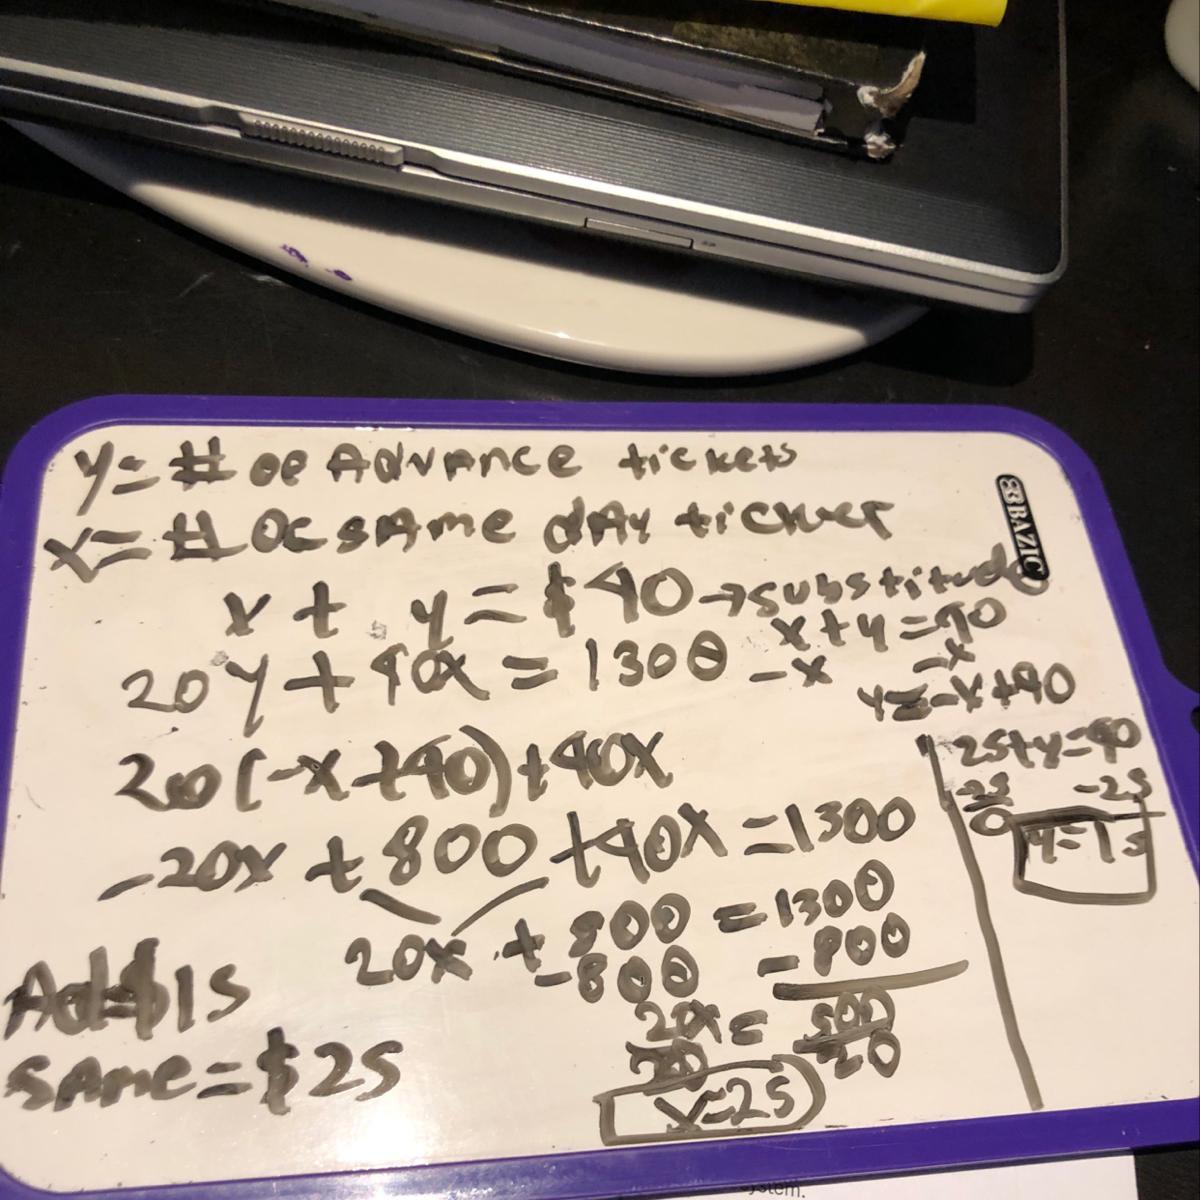 y = # oe Advance tickets
x = # Oc sAme dAy ticker
x + y = $40 → substitude
20y + 40x = 1300
x + y = 40
-x -x
y = -x + 40
20(-x + 40) + 40x
-20x + 800 + 40x = 1300
20x + 800 = 1300
-800 -800
20x = 500
20 20
x=25
25+y=40
-25 -25
0
y=15
Ad=$15
sAme=$25
BAZIC
system.